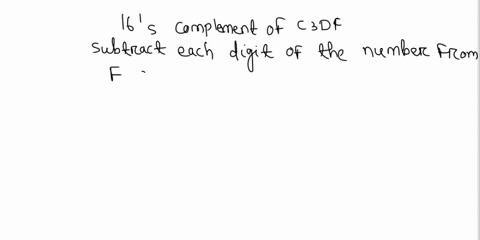 16's complement of C3DF
subtract each digit of the number from
F .